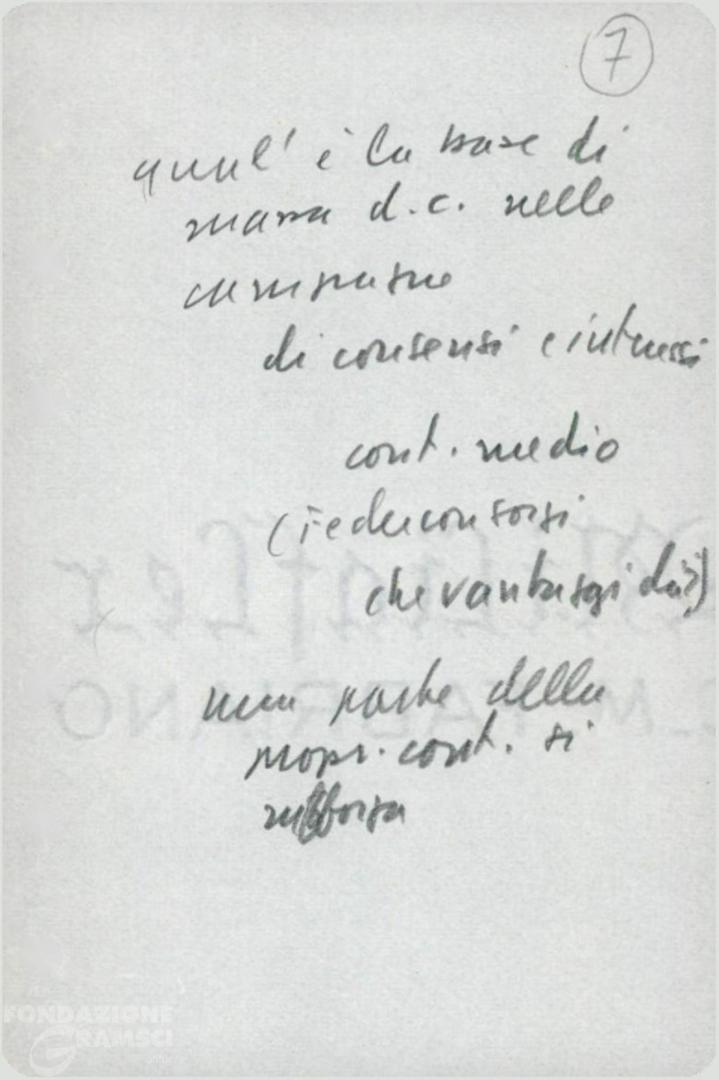 7
qual' è la base di
massa d.c. nelle
campagne
di consensi e interessi
cont. medio
(Federconsorzi
che vantaggi dà?)
una parte della
propr. cont. si
rafforza
FONDAZIONE
GRAMSCI
FABRIANO